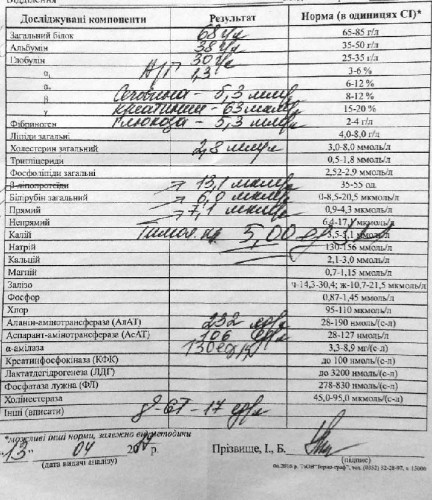 Досліджувані компоненти Результат Норма (в одиницях СІ)*
Загальний білок 68 г/л 65-85 г/л
Альбумін 38 г/л 35-50 г/л
Глобулін 30 г/л 25-35 г/л
α₁ А/Г 1,3 3-6 %
α₂ 6-12 %
β Сечовина - 5,3 ммоль 8-12 %
γ Креатинин - 63 мкмоль 15-20 %
Фібриноген Глюкоза - 5,3 ммоль 2-4 г/л
Ліпіди загальні 4,0-8,0 г/л
Холестерин загальний 2,8 ммоль 3,0-8,0 ммоль/л
Тригліцериди 0,5-1,8 ммоль/л
Фосфоліпіди загальні 2,52-2,9 ммоль/л
β-ліпопротеїди 13,1 мкмоль 35-55 од.
Білірубін загальний 6,0 мкмоль 0-8,5-20,5 мкмоль/л
Прямий 7,1 мкмоль 0,9-4,3 мкмоль/л
Непрямий 6,4-17,1 мкмоль/л
Калій Тимол 5,00 ммоль/л
Натрій 130-156 ммоль/л
Кальцій 2,1-3,0 ммоль/л
Магній 0,7-1,15 ммоль/л
Залізо ч-14,3-30,4; ж-10,7-21,5 мкмоль/л
Фосфор 0,87-1,45 ммоль/л
Хлор 95-110 мкмоль/л
Аланін-амінотрансфераза (АлАТ) 232 28-190 нмоль/(с·л)
Аспарат-амінотрансфераза (АсАТ) 106 28-127 нмоль/л
α-амілаза 130 3,3-8,9 мг/(с·л)
Креатинфосфокіназа (КФК) до 100 нмоль/(с·л)
Лактатдегідрогеназа (ЛДГ) до 3200 нмоль/(с·л)
Фосфатаза лужна (ФЛ) 278-830 нмоль/(с·л)
Холінестераза 45,0-95,0 мкмоль/(с·л)
Інші (вписати) 67-17
*можливі інші норми, залежно від методики
"13" 04 р. Прізвище, І., Б.
(дата видачі аналізу) (підпис)